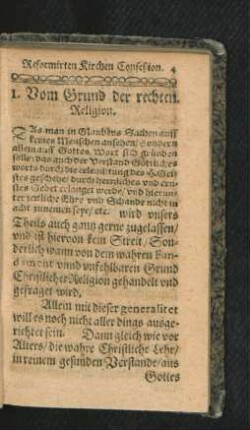 Reformirten Kirchen Confession. 4
1. Vom Grund der rechten
Religion.
DAs man in Glaubens Sachen auff
keinen Menschen ansehen/ sondern
allein auff Gottes Wort sich gründen
solle/ das auch der Verstand Göttliches
worts durch die erleuchtung des H. Gei-
stes geschehe/ durch hertzliches und ern-
stes Gebet erlanget werde/ und hierun-
ter zeitliche Ehre und Schande nicht in
acht zunemen sey/ etc. wird unsers
Theils auch gantz gerne zugelassen/
und ist hiervon kein Streit/ Son-
derlich wann von dem wahren Fun-
dament und unfehlbaren Grund
Christlicher Religion gehandelt und
gefraget wird.
Allein mit dieser generalitet
will es noch nicht aller dings ausge-
richtet sein. Dann gleich wie vor
Alters/ die wahre Christliche Lehr/
in reinem gesunden Verstande/ aus
Gottes